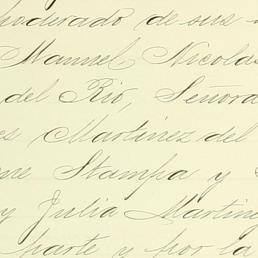 poderado de sus
Manuel Nicolas
del Rio, Señora
es Martinez del
ne Stampa y
y Julia Martine
parte y por la